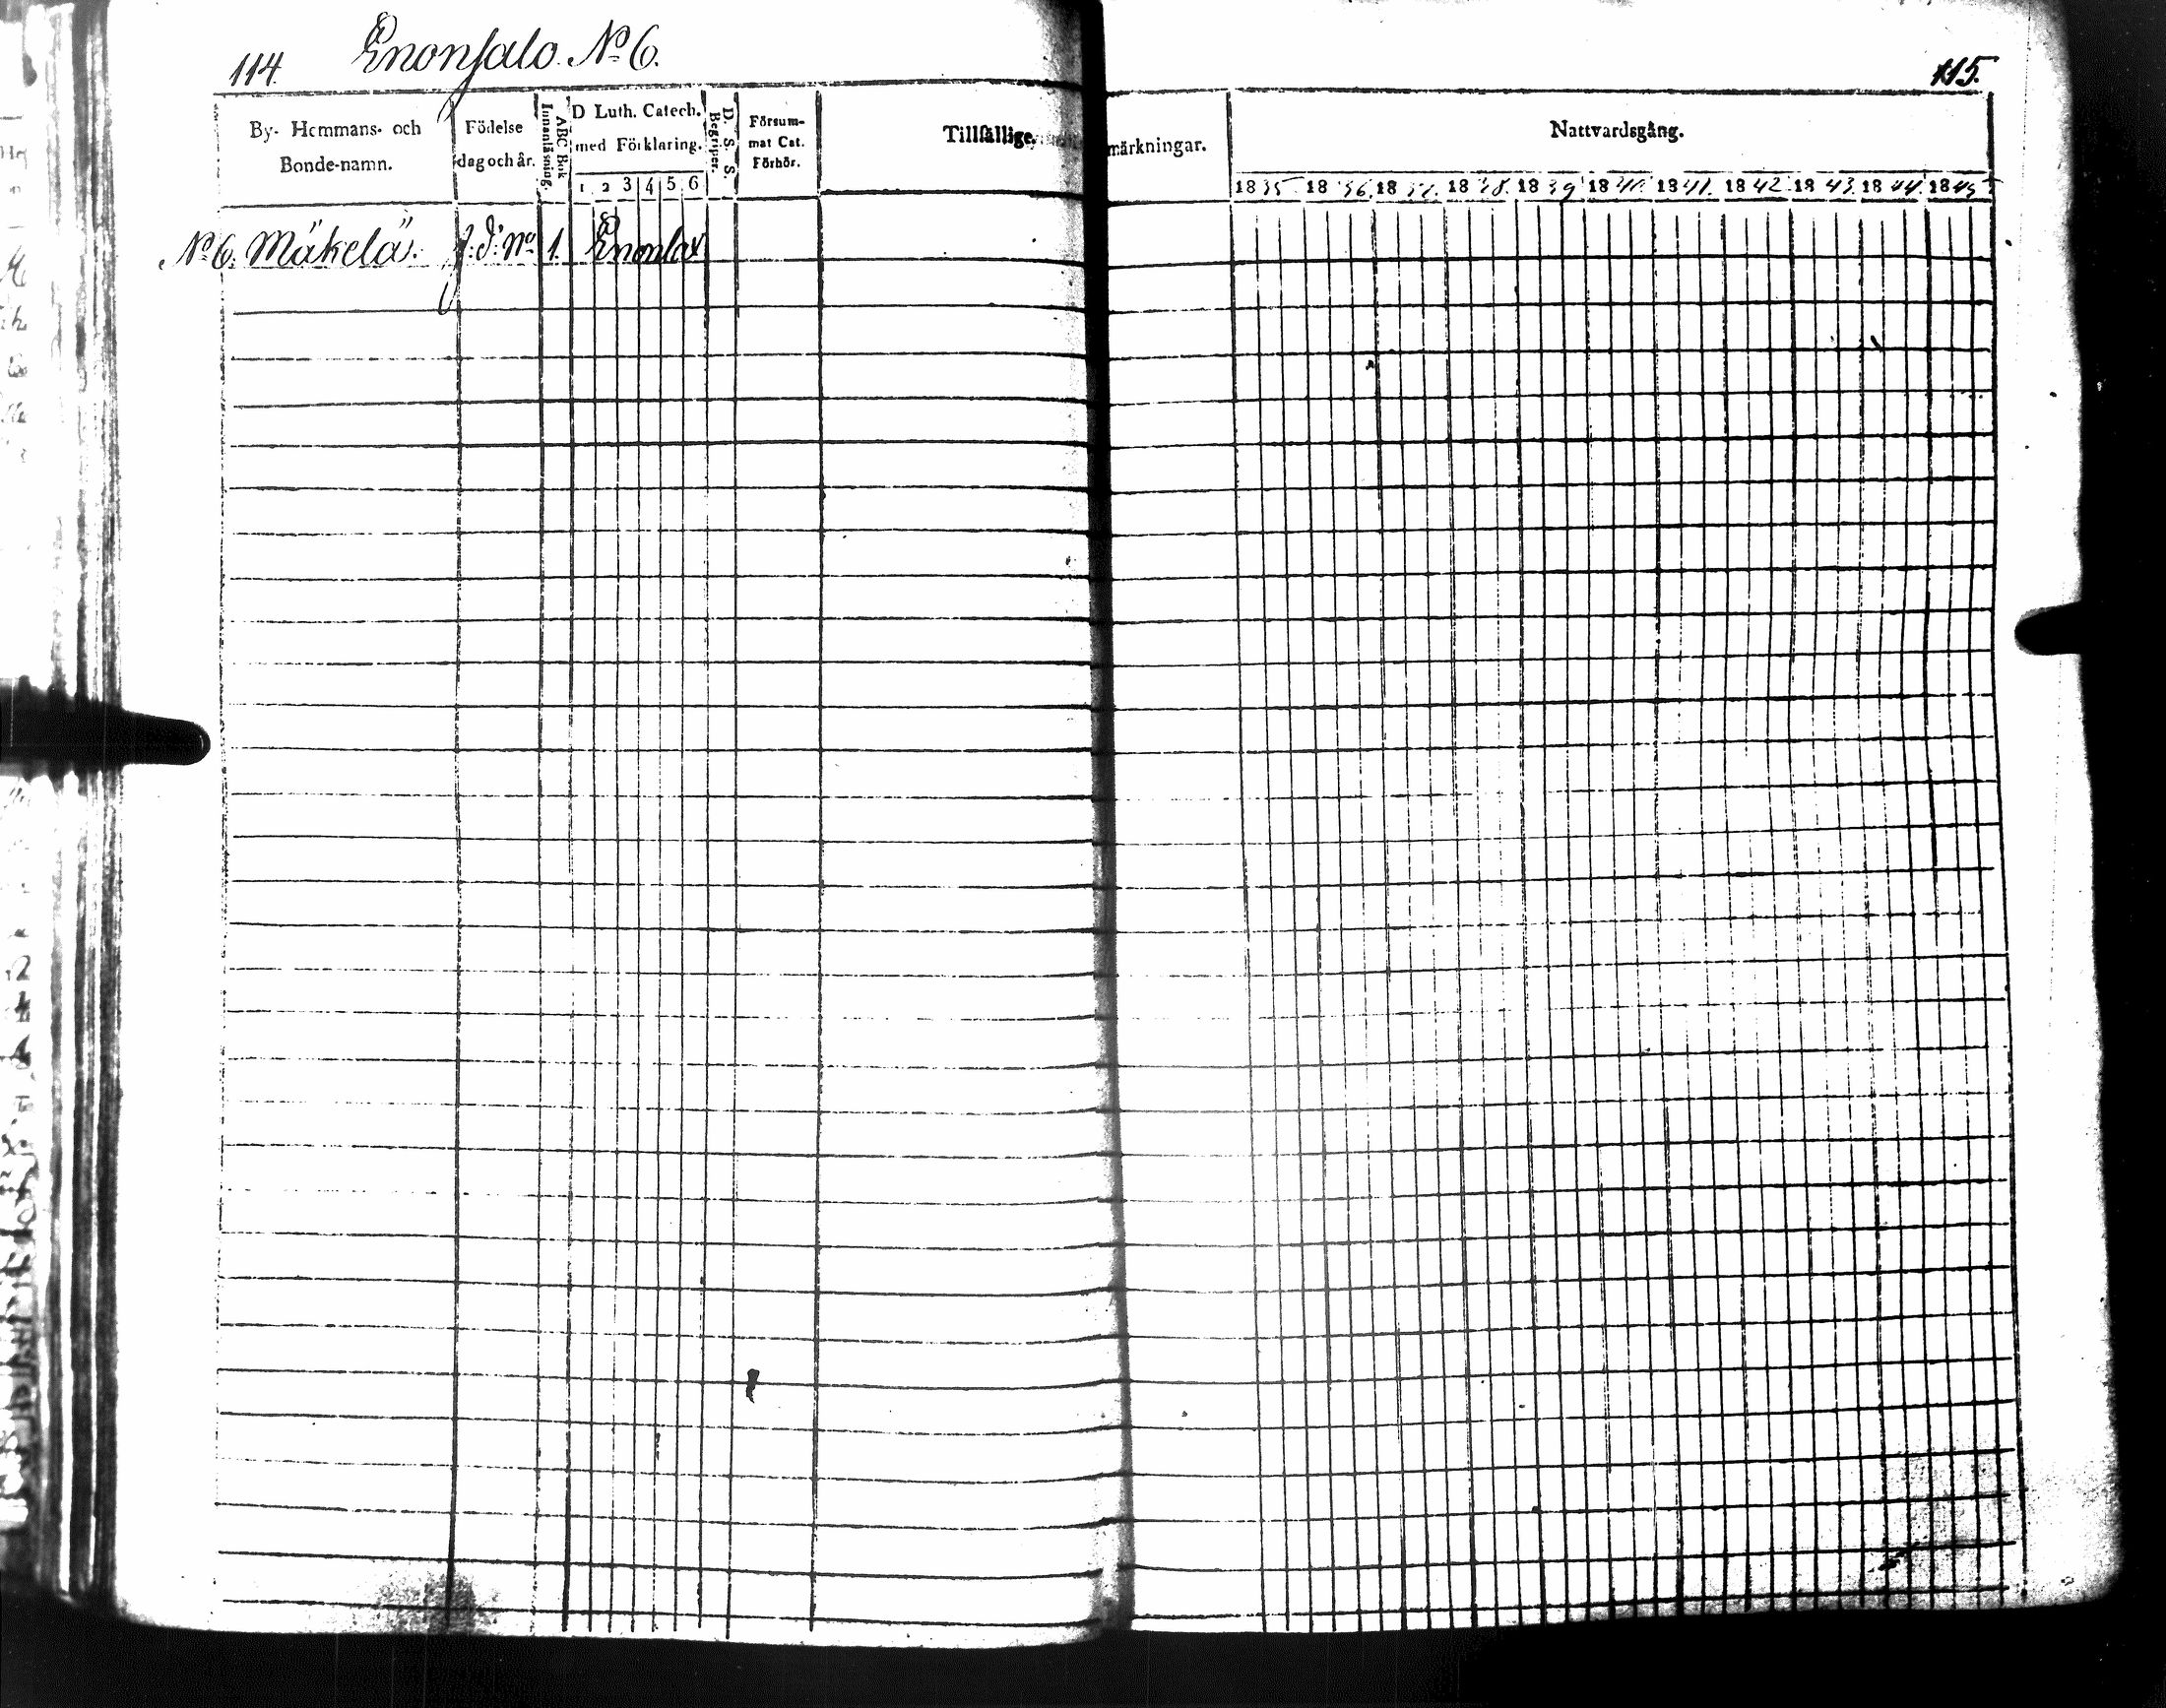 114. Enonsalo. No 6.
115.
By- Hemmans- och
Bonde-namn.
Födelse
dag och år.
Innanläsning.
ABC Bok
D Luth. Catech.
med Förklaring.
1 2 3 4 5 6
Begriper.
D. S. S.
Försum-
mat Cat.
Förhör.
Tillfällige
märkningar.
Nattvardsgång.
1835 1836. 1837. 1838. 1839 1840. 1841. 1842. 1843. 1844. 1845
No 6. Mäkelä. No 1 Enonlax